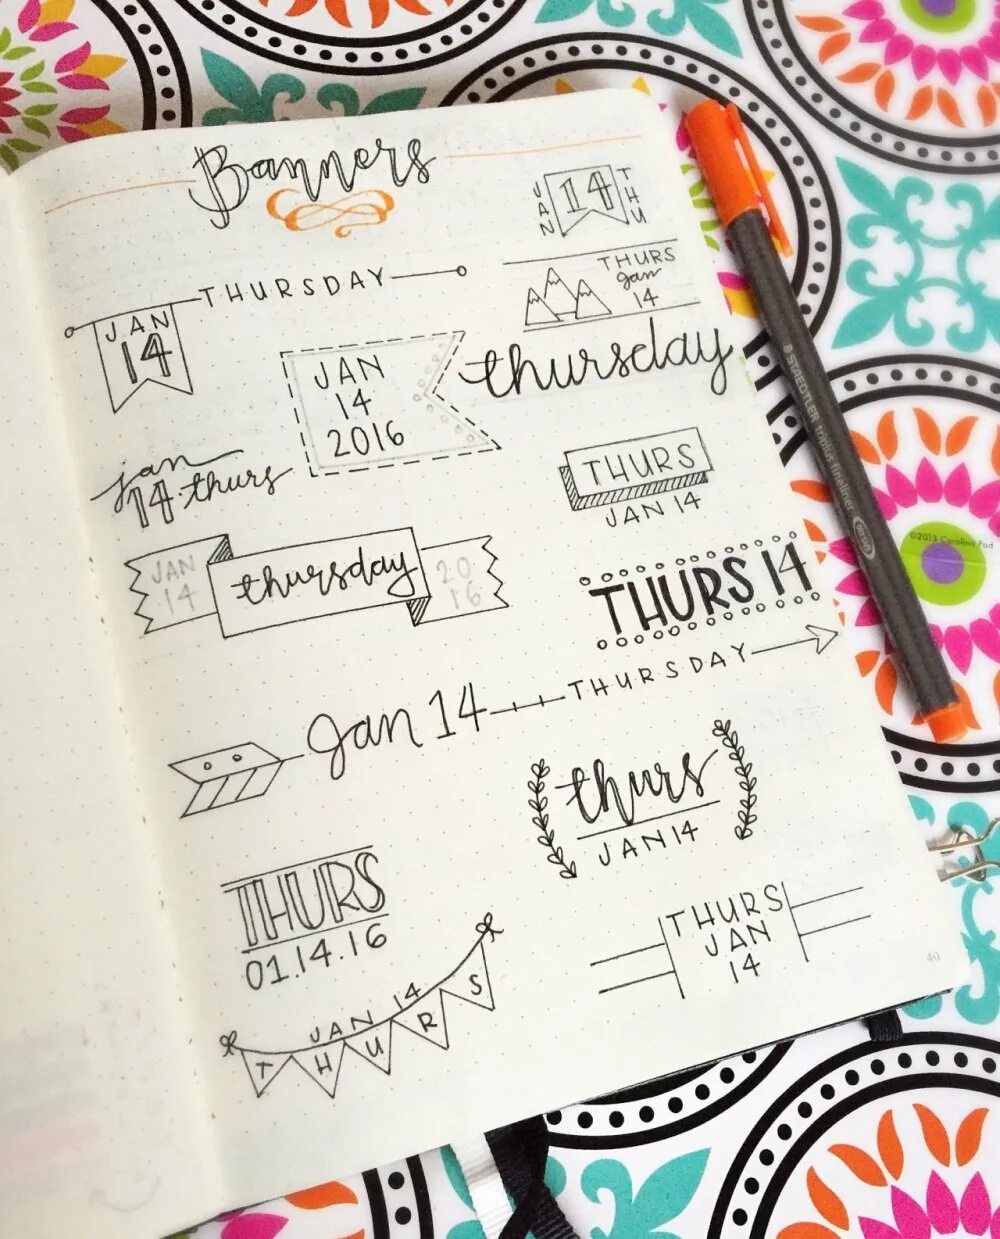 Banners
JAN
14
THU
THURSDAY
JAN
14
THURS
Jan
14
JAN
14
2016
thursday
jan
14. thurs
THURS
JAN 14
JAN
14
thursday
20
16
THURS 14
Jan 14
THURSDAY
thurs
JAN 14
THURS
01.14.16
THURS
JAN
14
JAN 14
THURS
40
STAEDTLER triplus fineliner
©2013 Carolina Pad